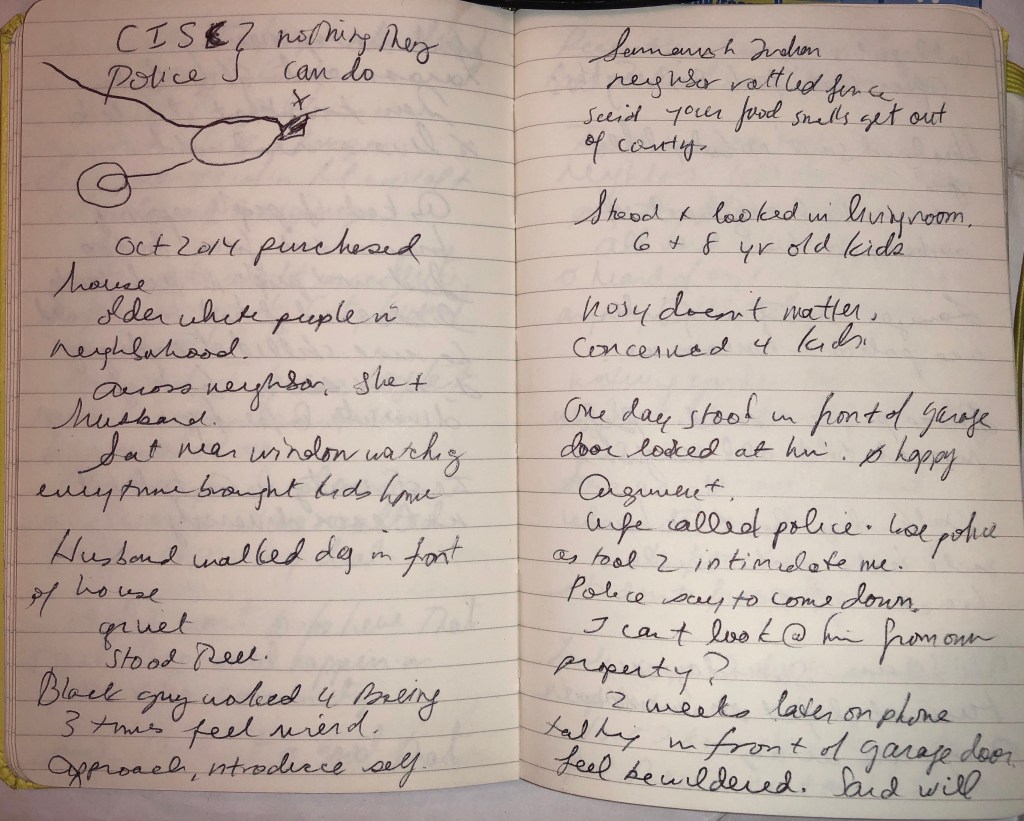 CIS } nothing they
Police } can do
x
Oct 2014 purchased
house
older white people in
neighborhood.
across neighbor, she +
husband.
Sat near window watchig
everytime brought kids home
Husband walked dog in front
of house
quiet
stood
Black guy worked 4 Boeing
3 times feel wierd.
Approach, introduce self.
Indian
neighbor rattled fence
said your food smells get out
of contry.
Stood & looked in livingroom.
6 + 8 yr old kids
nosy doesn't matter.
Concerned 4 kids.
One day stood in front of garage
door looked at him. happy
Argument.
wife called police. Use police
as tool 2 intimidate me.
Police say to come down.
I can't look @ him from own
property?
2 weeks later on phone
talkig in front of garage door
feel bewildered. Said will